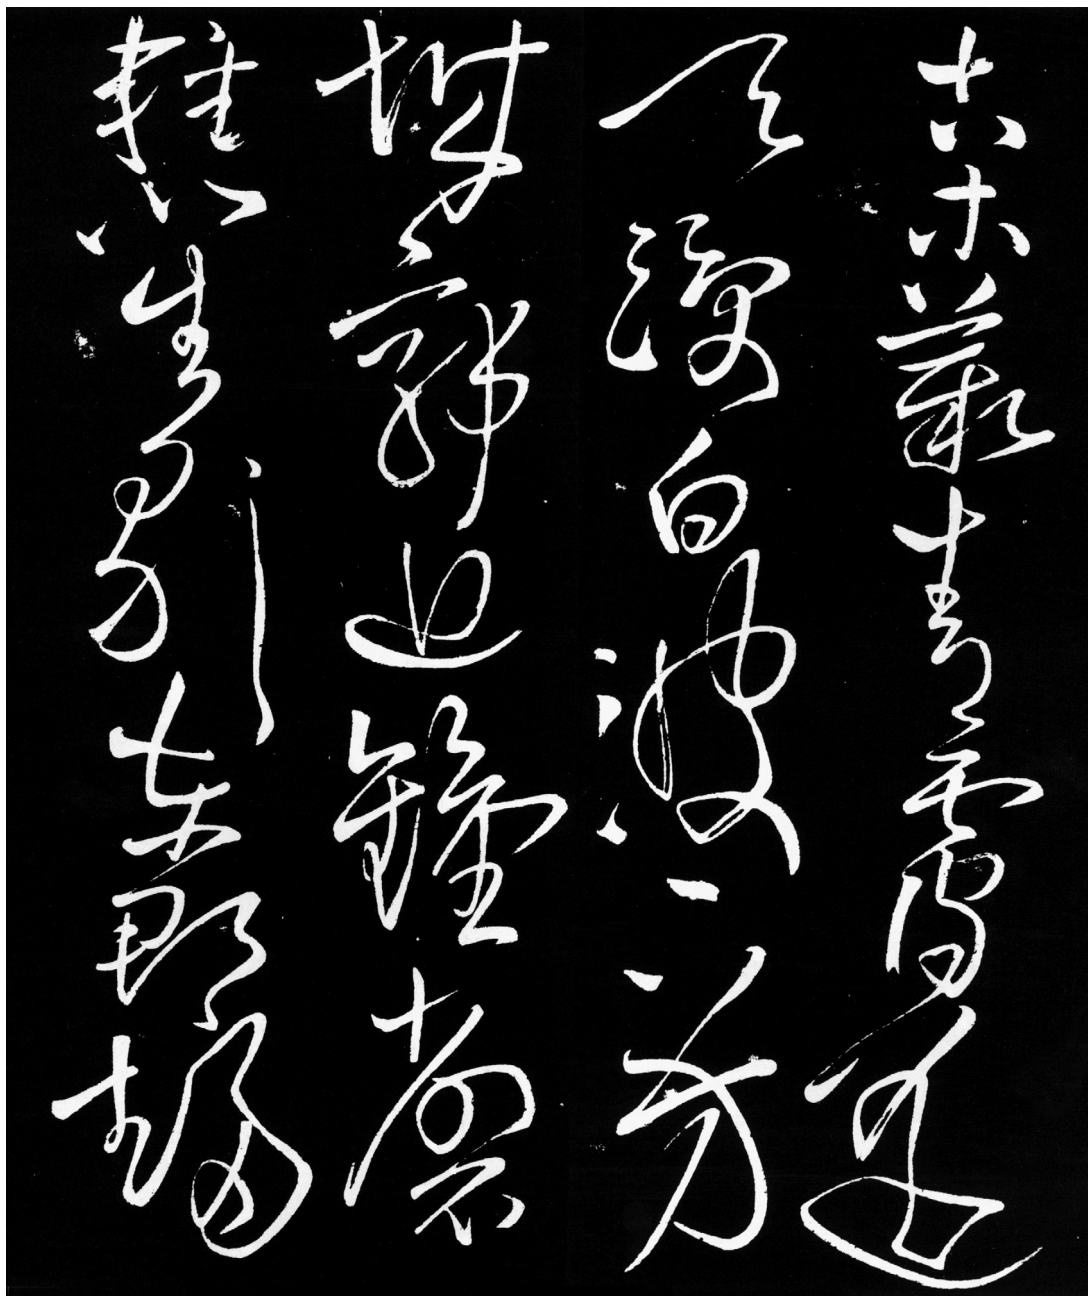 古木叢青靄遙
天浸白波下方
城郭近鐘磬
雜笙歌東